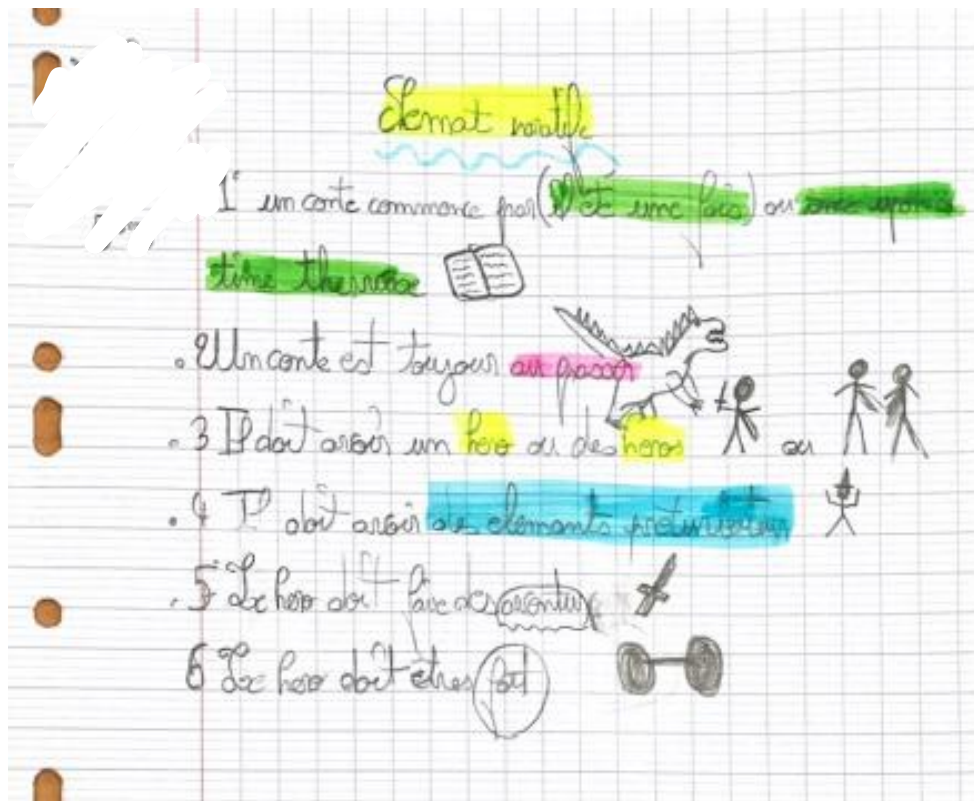 Elemat naratife
1 un conte commence par (il été une fois) ou once upon a
time
. 2 Un conte est toujour au passer
. 3 Il doit avoir un hero ou des heros ou
. 4 Il doit avoir des elemants
. 5 Le hero doit faire des aventure
6 Le hero doit etres fort